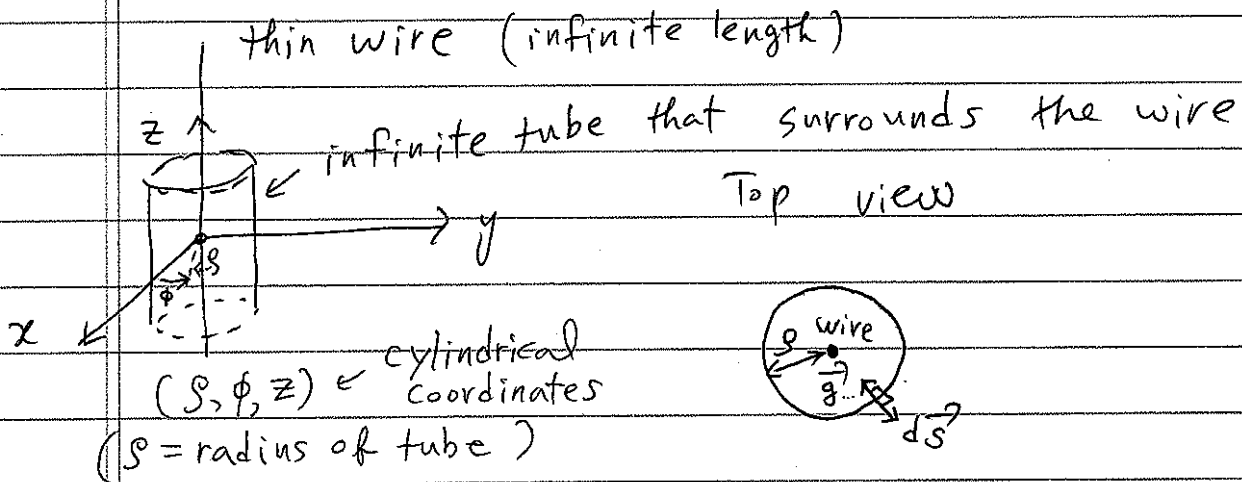 thin wire (infinite length)
z
infinite tube that surrounds the wire
Top view
y
ρ
φ
x
wire
ρ
g⃗
dS⃗
(ρ, φ, z) ← cylindrical
coordinates
(ρ = radius of tube)